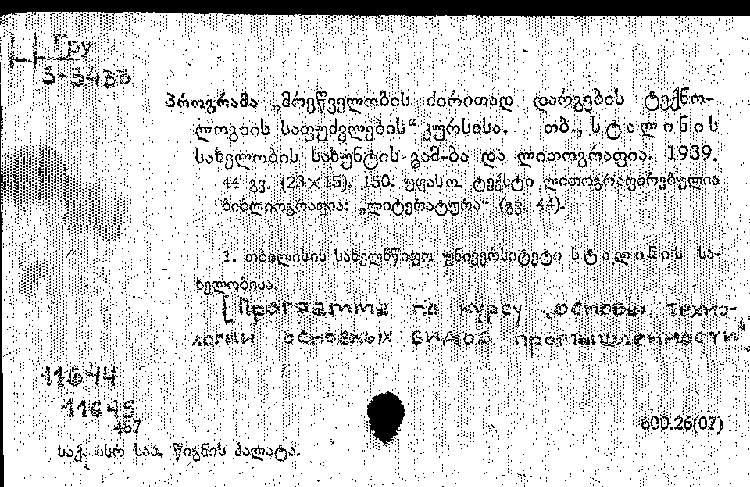 Гру
3-3433
პროგრამა „მრეწველობის ძირითად დარგების ტექნო-
ლოგიის საფუძვლების“ კურსისა. თბ., სტალინის
სახელობის სახუნტის გამ-ბა და ლითოგრაფია. 1939.
44 გვ. (23×15). 150. უფასო. ტექსტი ლითოგრაფირებულია
ბიბლიოგრაფია: „ლიტერატურა“ (გვ. 44).
1. თბილისის სახელმწიფო უნივერსიტეტი სტალინის სა-
ხელობისა.
[Программа по курсу „основы техно-
логии основных видов промышленности“
11644
11645
467
600.26(07)
საქ. სსრ სახ. წიგნის პალატა.